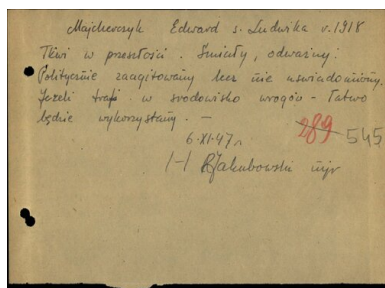 Majcherczyk Edward s. Ludwika u. 1918
Tkwi w przeszłości. Śmiały, odważny.
Politycznie zaagitowany lecz nie uświadomiony.
Jeżeli trafi w środowisko wrogów - łatwo
będzie wykorzystany. -
6.XI.47 r
289 545
/-/ R Jakubowski mjr